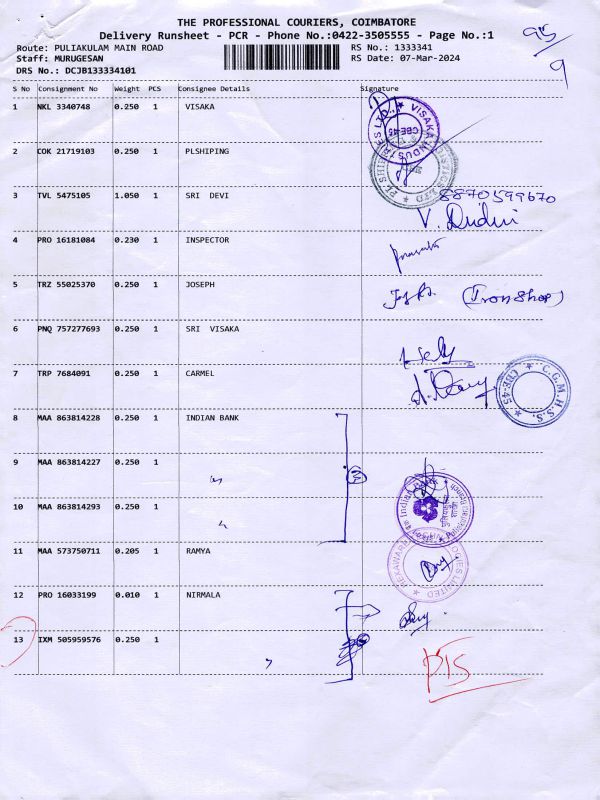 THE PROFESSIONAL COURIERS, COIMBATORE
Delivery Runsheet - PCR - Phone No.:0422-3505555 - Page No.:1
95/9
Route: PULIAKULAM MAIN ROAD
RS No.: 1333341
Staff: MURUGESAN
RS Date: 07-Mar-2024
DRS No.: DCJB133334101
S No Consignment No Weight PCS Consignee Details Signature
1 NKL 3340748 0.250 1 VISAKA
VISAKA INDUSTRIES LTD. CBE-45
2 COK 21719103 0.250 1 PLSHIPING
3 TVL 5475105 1.050 1 SRI DEVI
8870599670
4 PRO 16181084 0.230 1 INSPECTOR
5 TRZ 55025370 0.250 1 JOSEPH
(Iron Shop)
6 PNQ 757277693 0.250 1 SRI VISAKA
7 TRP 7684091 0.250 1 CARMEL
C.G.M.H.S.S. CBE-45
8 MAA 863814228 0.250 1 INDIAN BANK
9 MAA 863814227 0.250 1 "
3
10 MAA 863814293 0.250 1 "
Indian Bank
11 MAA 573750711 0.205 1 RAMYA
12 PRO 16033199 0.010 1 NIRMALA
13 IXM 505959576 0.250 1 "